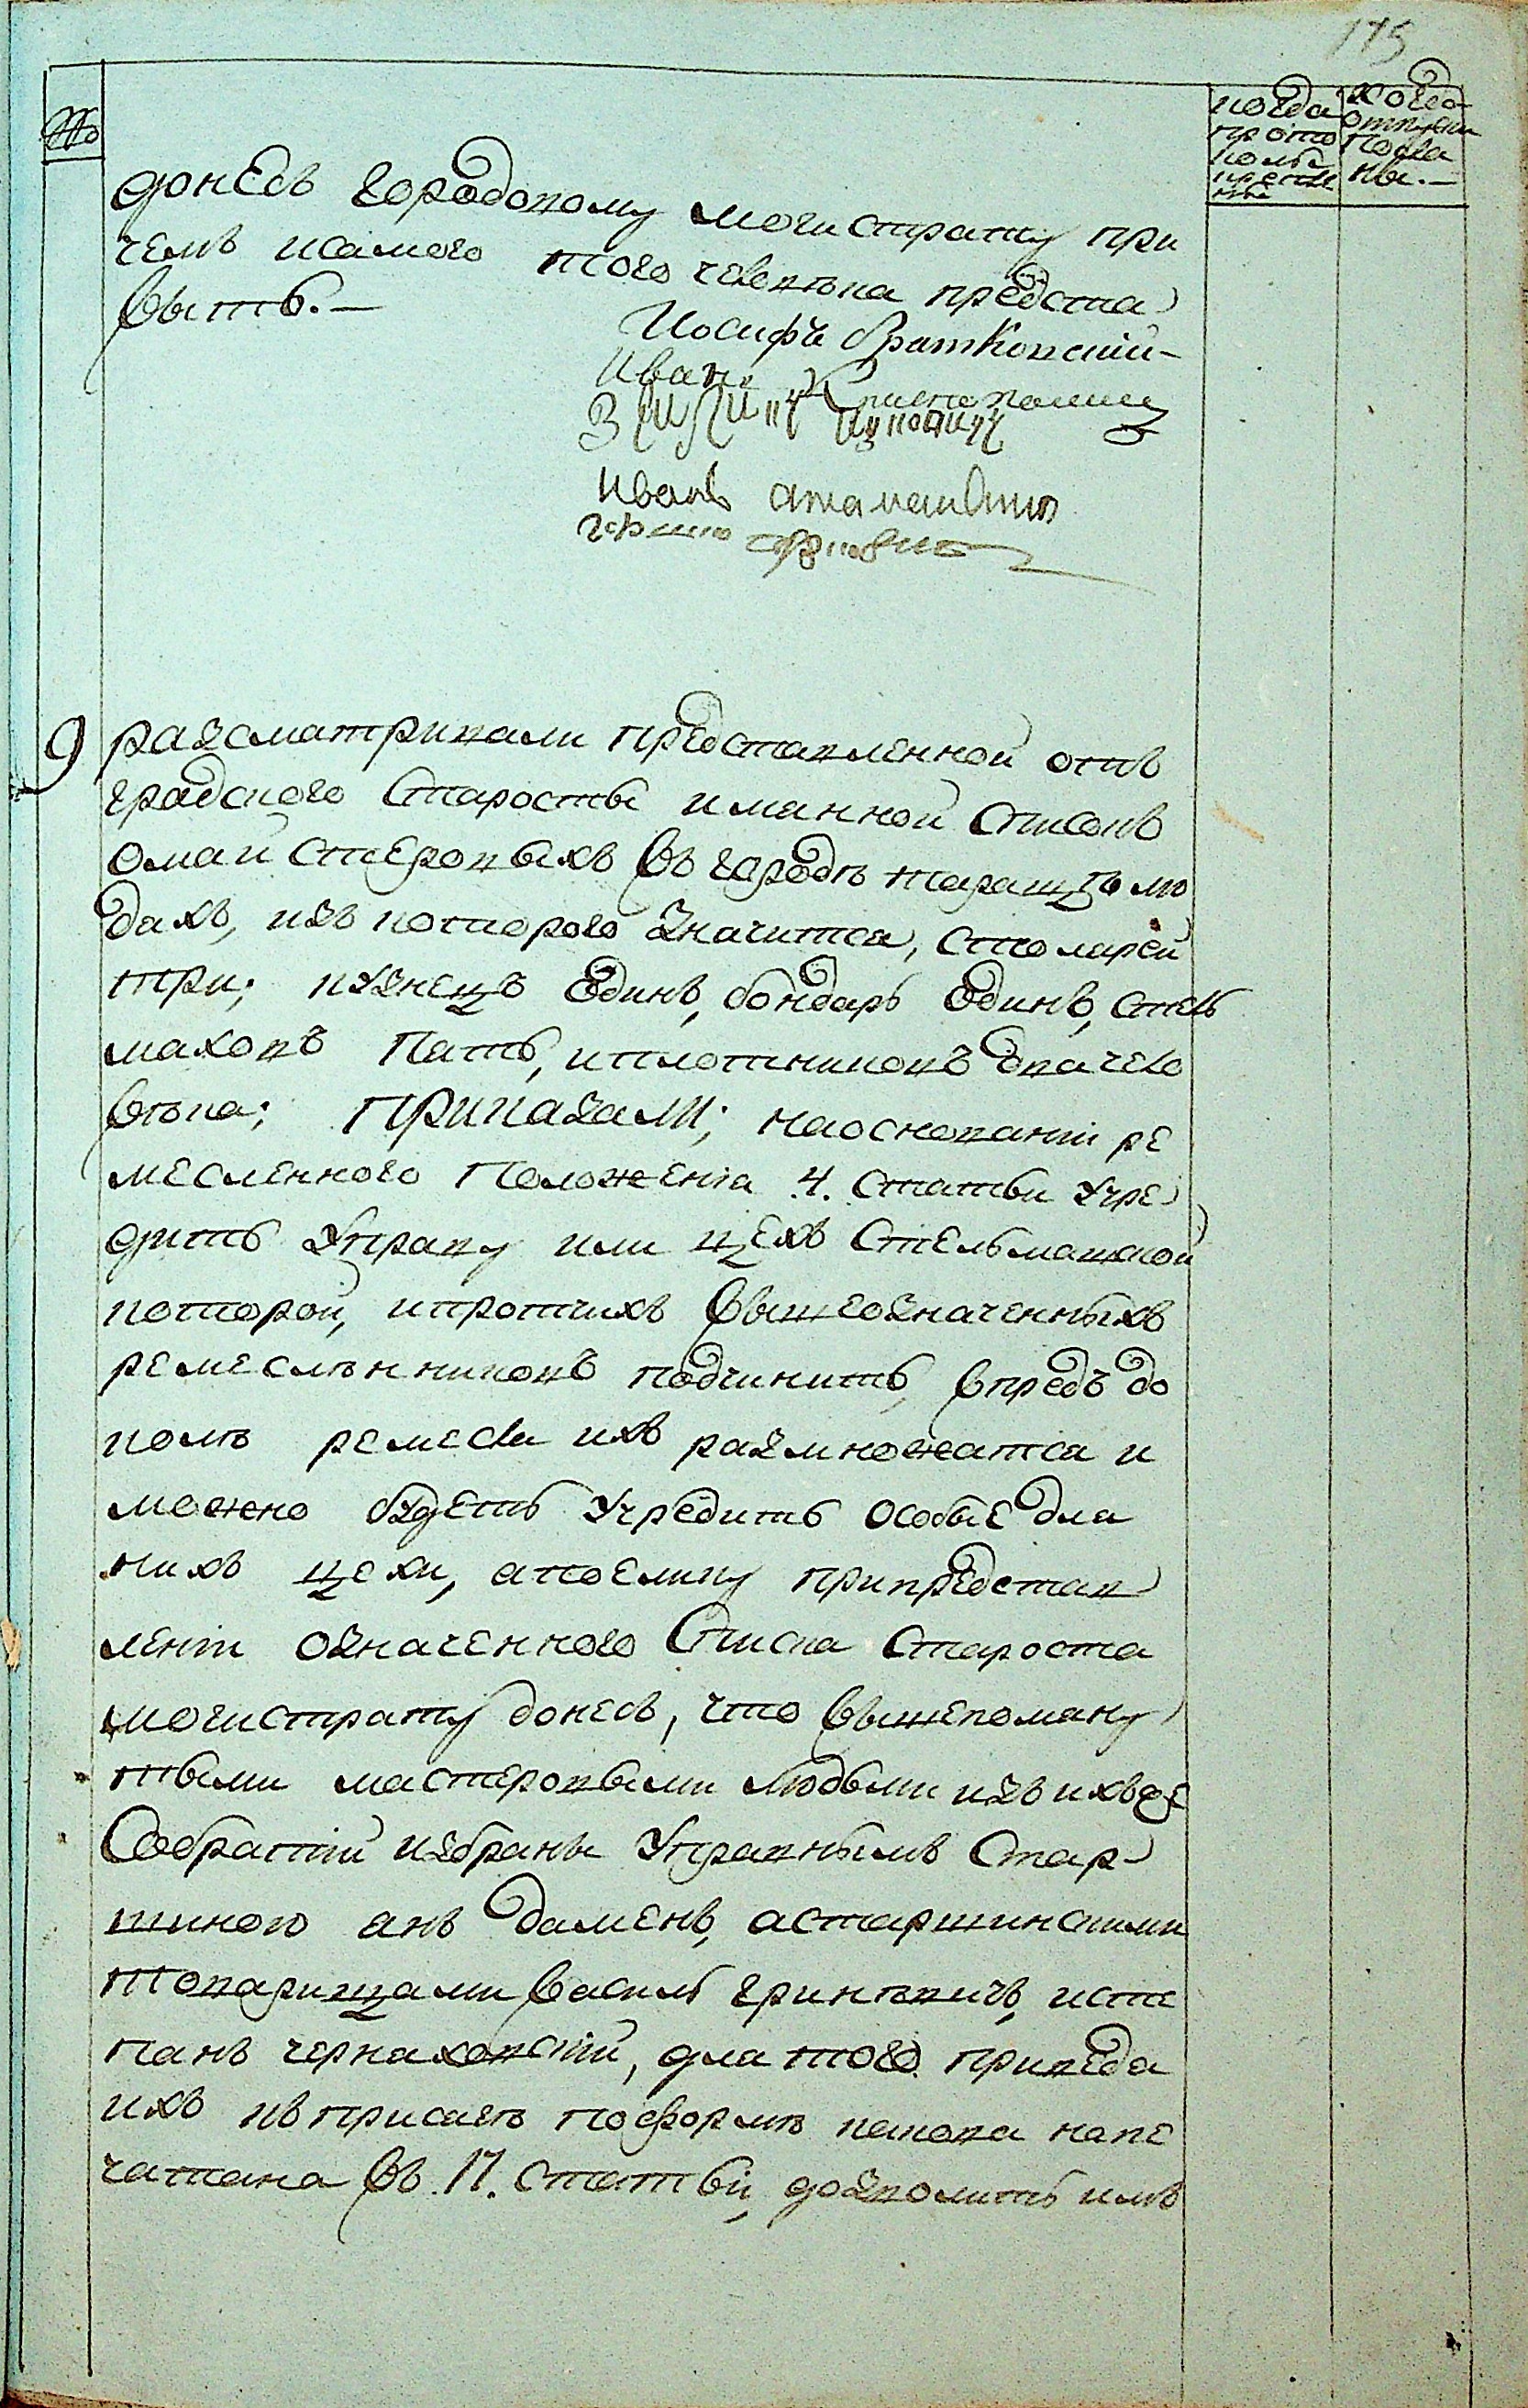 175
№
когда прото колъ крепле нъ
когда отпуски посла ны.—
донесъ городовому могистрату при
чемъ исамого того человѣка предста
вить.—
Иосифъ Братковский
Иванъ
Иванъ
9 разсматривали представленной отъ
градского Старосты иманной Списокъ
омай стеровыхъ въ городѣ таращѣ лю
дахъ, изъ которого значится, столярей
три; кузнецъ Одинъ, бондарь Одинъ, стел
маховъ Пять, иплотниковъ два чело
вѣка; ПРИКАЗАЛИ; наоснованіи ре
месленного Положенія 4. Статьи Учре
дить Управу или цехъ Стельмашской
которой, ипротчихъ вышеозначенныхъ
ремесльнниковъ подчинить, впредъ до
колѣ ремесла ихъ размножатся и
можно будетъ Учредить особые для
нихъ цехи, апоелику припредстав
леніи означенного Списка Староста
могистрату донесъ, что вышепомяну
тыми мастеровыми людьми изъ ихъ же
Собратій избраны Управнымъ Стар-
шиною янъ даменъ, астаршинскими
товарищами василь гринѣвичъ, исте
панъ черняховскій, для того приведя
ихъ къ присягѣ поформѣ какова напе
чатана въ 17. статьи, дозволить имъ